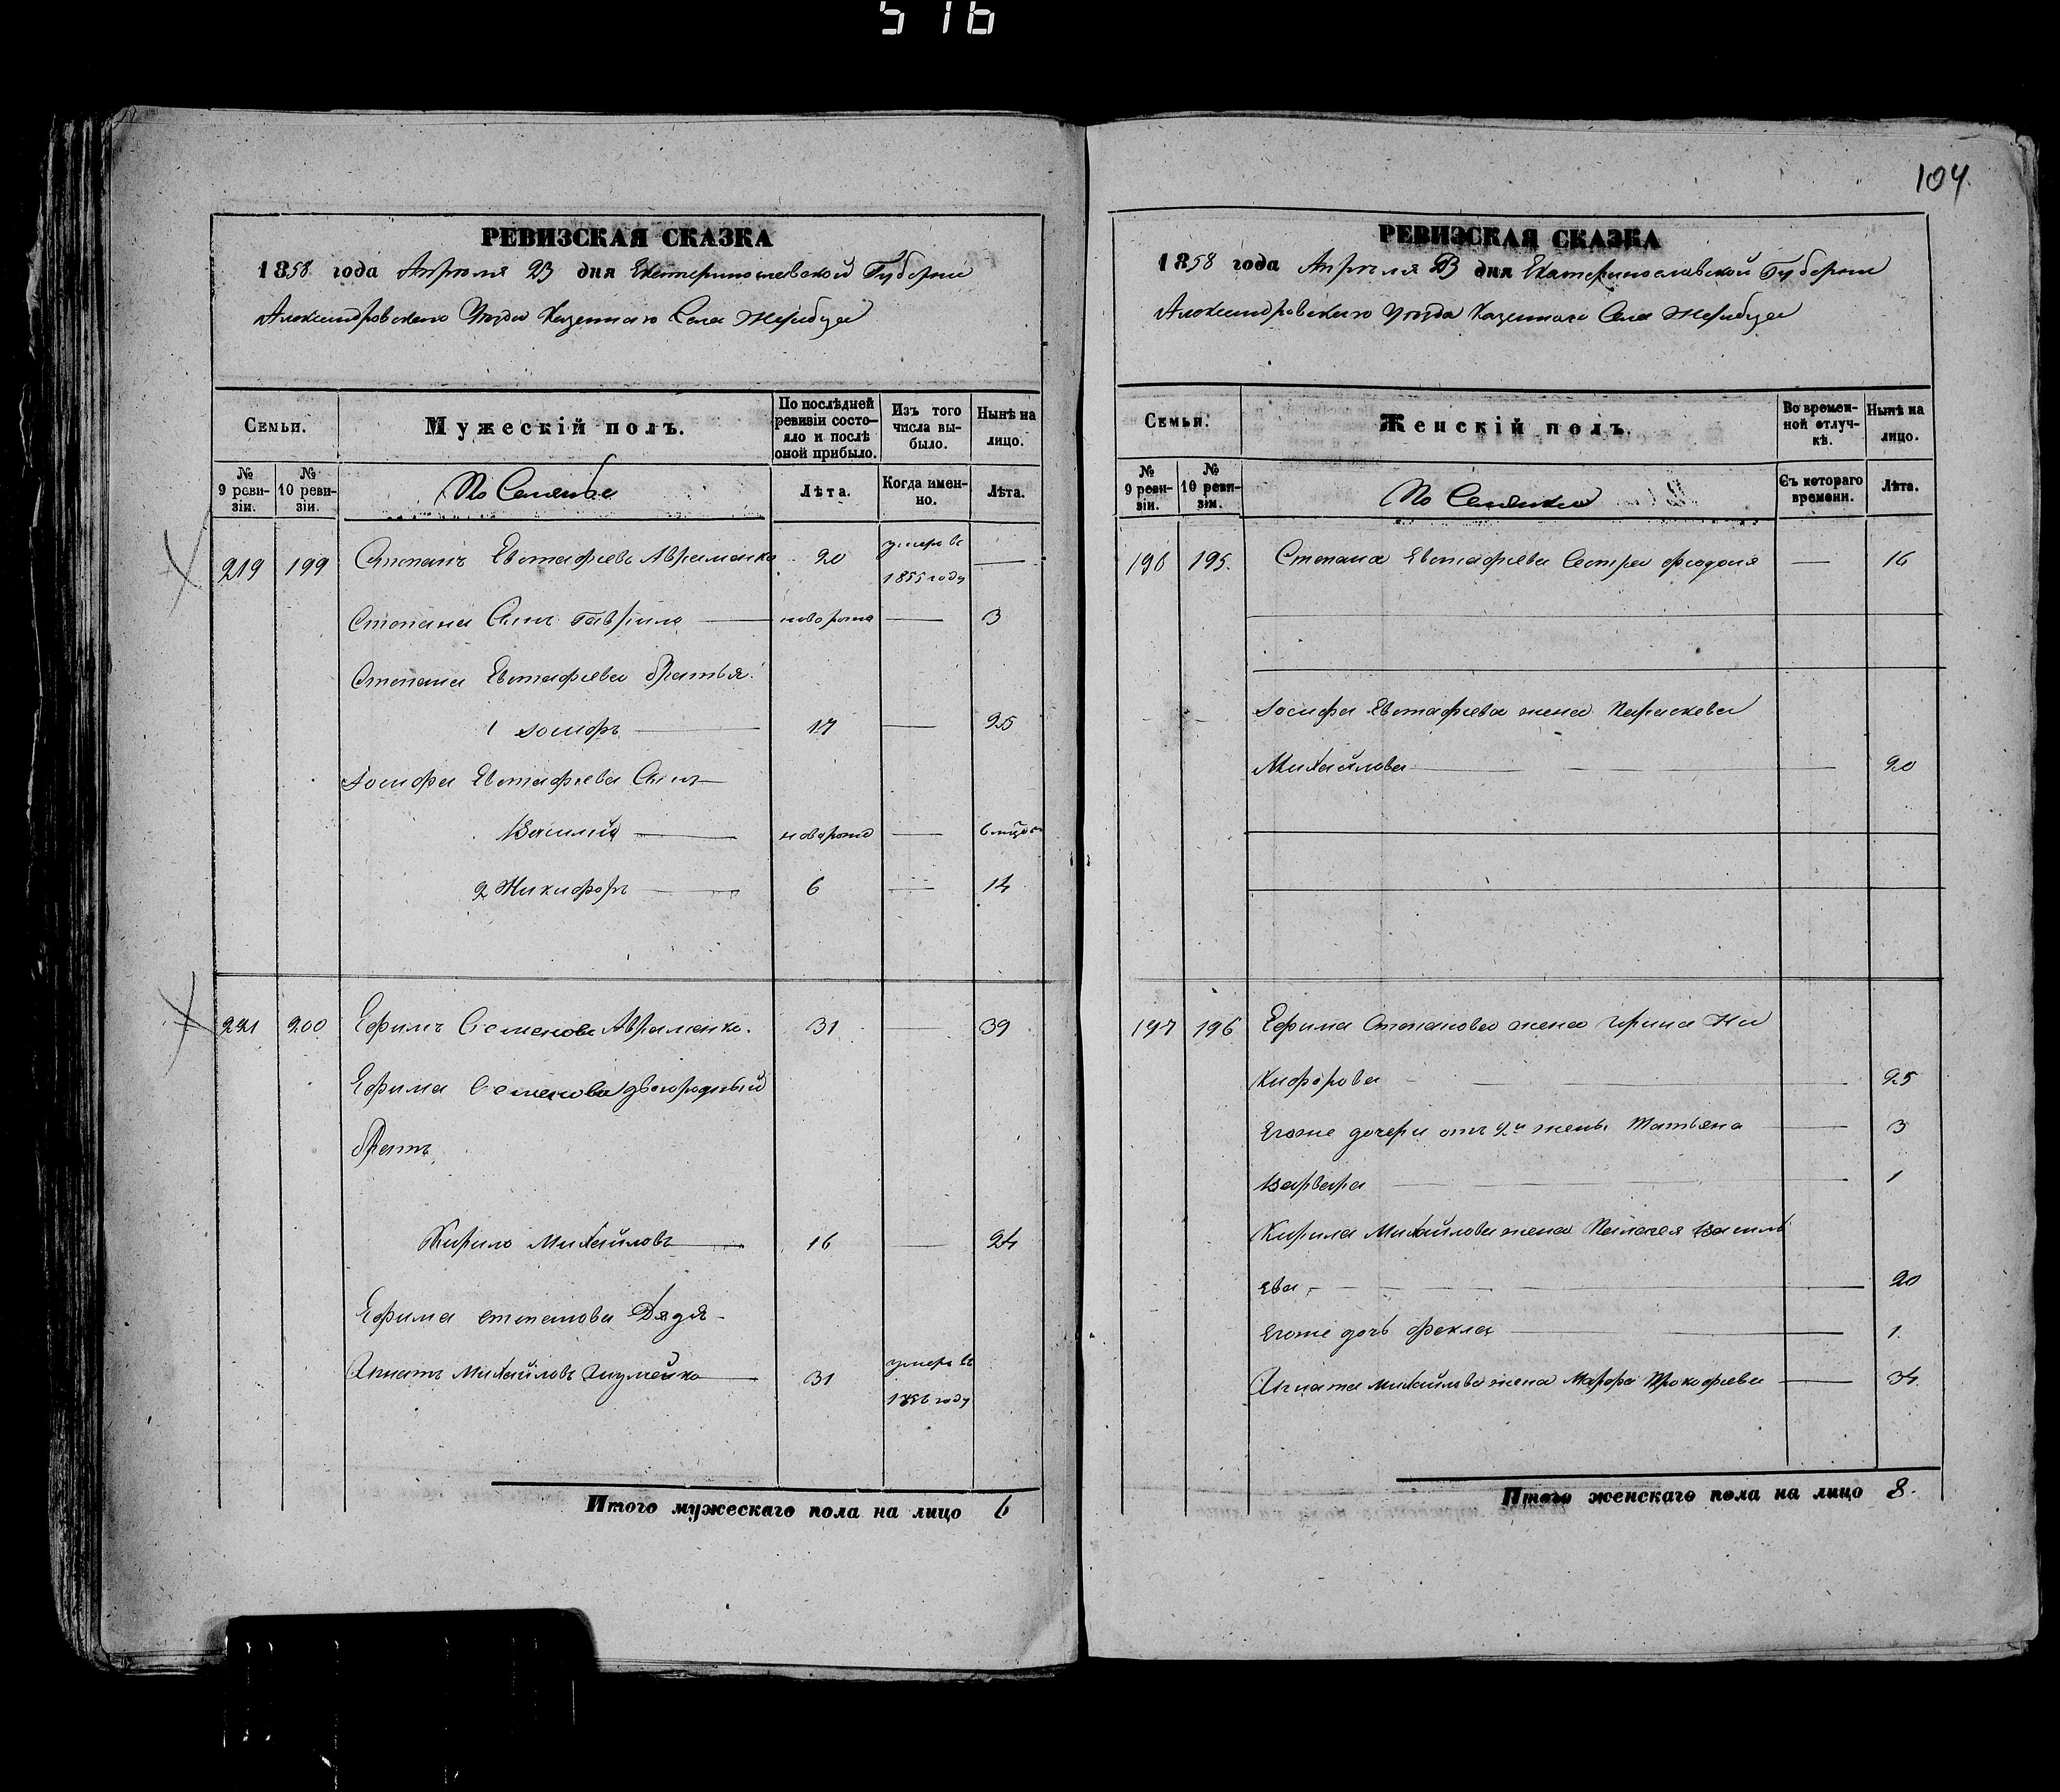 516
104
РЕВИЗСКАЯ СКАЗКА
1858 года Апреля 23 дня Екатеринославской Губернии
Александровского Уезда Казенного Села Жеребца
Семьи.
Мужескій полъ.
По послѣдней ревизіи состояло и послѣ оной прибыло.
Изъ того числа выбыло.
Нынѣ на лицо.
№ 9 ревизіи.
№ 10 ревизіи.
Лѣта.
Когда именно.
Лѣта.
219 199 Степанъ Евстафіевъ Авраменко 20 умеръ въ 1855 году —
Степана Сынъ Гаврило — новорож — 3
Степана Евстафіева братья
1 Іосифъ — 17 — 25
Іосифа Евстафіева Сынъ
Василій — новорож —
2 Никифоръ — 6 — 14
221 200 Ефимъ Семеновъ Авраменко. 31 39
Ефима Семенова двоюродный
братъ
Кирило Михайловъ — 16 — 24
Ефима степанова Дядя
Игнатъ Михайловъ 31 умеръ въ 1856 году
Итого мужескаго пола на лицо 6
РЕВИЗСКАЯ СКАЗКА
1858 года Апреля 23 дня Екатеринославской Губернии
Александровского Уезда Казенного Села Жеребца
Семьи.
Женскій полъ.
Во временной отлучкѣ.
Нынѣ на лицо.
№ 9 ревизіи.
№ 10 ревизіи.
Съ котораго времени.
Лѣта.
196 195. Степана Евстафіева Сестра Феодосія — 16
Іосифа Евстафіева жена Параскева
Михайлова — 20
197 196 Ефима Степанова жена Ирина Ни
кифорова — 25
Егоже дочери отъ 2й жены Татьяна — 3
Варвара — 1
Кирила Михайлова жена Пелагея Василь
ева — 20
Егоже дочь Фекла — 1.
Игната Михайлова жена Марфа Прокофіева — 34.
Итого женскаго пола на лицо 8.